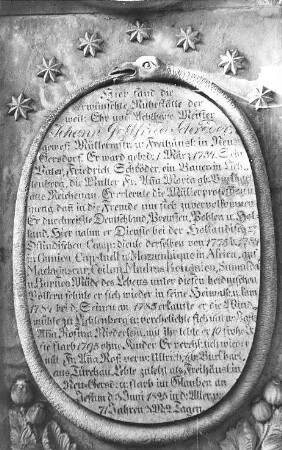 Hier fand die
erwünschte Ruhestätte der
weil. Ehr und Achtbare Meister
Johann Gottfried Schröder,
gewes. Müllermstr. u. Freihäusl. in Neu
Gersdorf. Er ward geb. d. 1 März 1754. Sein
Vater, Friedrich Schröder, ein Bauer in Eich-
lenberg, die Mutter Fr. Aña Maria gb.
aus Reichenau. Er erlernte die Müllerprofession
ging das in die Fremde um sich zu vervollkommnen
Er durchreiste Deutschland, Preussen, Pohlen u. Hol-
land. Hier nahm er Dienste bei der Holländisch Ost
Indischen Comp: diente derselben von 1775 b. 1781
in Guinea, Capstadt u. Mozambique in Africa, auf
Madagascar, Ceilon, Madras, Bengalen, Sumatra
Lebens unter diesen heidnischen
Völkern sehnte er sich wieder in seine Heimath, u. kam
1784 bei d. Seinen an. 1785 erkaufte er die Wind-
mühle zu Eichlenberg, verehelichte sich mit
Aña Rosina Niederlein, mit ihr lebte er 10 frohe J.
sie starb 1795 ohne Kinder. Er verehl. sich wieder
mit Fr. Aña Ros. verw. Ullrich, gb.
aus Türchau. Lebte zuletzt als Freihäusl. in
Neu-Gersd. u. starb im Glauben an
Jesum d. 3 Juni 1825 in d. Alter v.
71 Jahren 3 M. 2 Tagen.